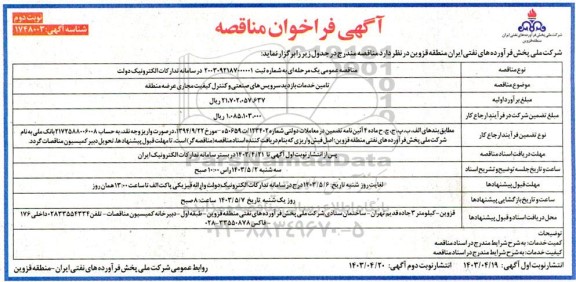 آگهی فراخوان مناقصه
نوبت دوم
شناسه آگهی: ۱۷۲۸۰۰۳
شرکت ملی پخش فرآورده های نفتی ایران
منطقه قزوین
شرکت ملی پخش فرآورده های نفتی ایران منطقه قزوین در نظر دارد مناقصه مندرج در جدول زیر را برگزار نماید:
نوع مناقصه
مناقصه عمومی یک مرحله‌ای به شماره ثبت ۲۰۰۳۰۹۲۱۸۷۰۰۰۰۰۱ در سامانه تدارکات الکترونیک دولت
موضوع مناقصه
تامین خدمات بازدید سرویس های صنعتی و کنترل کیفیت مجاری عرضه منطقه
مبلغ برآورد اولیه
۲۱,۷۰۲,۰۵۷,۶۳۷ ریال
مبلغ تضمین شرکت در فرآیند ارجاع کار
۱,۰۸۵,۱۰۳,۰۰۰ ریال
نوع تضمین شرکت در فرآیند ارجاع کار
مطابق بندهای الف، ب، پ، ج، چ، ح ماده ۴ آئین نامه تضمین در معاملات دولتی شماره ۱۲۳۴۰۲/ت۵۰۶۵۹ه مورخ ۱۳۹۴/۹/۲۲، در صورت واریز وجه نقد به حساب ۲۱۷۲۵۸۸۰۰۶۰۰۸ بانک ملی به نام شرکت ملی پخش فرآورده های نفتی منطقه قزوین، اصل فیش واریزی که بنام دریافت کننده اسناد مناقصه/مناقصه گر است، تا مهلت قبول پیشنهادها، تحویل دبیر کمیسیون مناقصات گردد.
مهلت دریافت اسناد مناقصه
پس از انتشار نوبت اول آگهی تا ۱۴۰۳/۴/۲۱ در بستر سامانه تدارکات الکترونیک ایران
ساعت و تاریخ جلسه توضیح و تشریح اسناد
سه شنبه ۱۴۰۳/۵/۲ راس ۱۰:۰۰ صبح
مهلت قبول پیشنهادها
لغایت روز شنبه تاریخ ۱۴۰۳/۵/۶ درج در سامانه تدارکات الکترونیک دولت و ارائه فیزیکی پاکت الف تا ساعت ۱۳:۰۰ همان روز
ساعت و تاریخ بازگشایی پیشنهادها
روز یک شنبه تاریخ ۱۴۰۳/۵/۷ ساعت ۸ صبح
محل دریافت اسناد و قبول پیشنهادها
قزوین - کیلومتر ۳ جاده قدیم تهران - ساختمان ستادی شرکت ملی پخش فرآورده های نفتی منطقه قزوین - طبقه اول - دبیرخانه کمیسیون مناقصات - تلفن ۰۲۸۳۳۵۵۴۳۳۴ داخلی ۱۷۶ - فاکس ۳۳۵۵۰۸۷۸-۰۲۸
توضیحات
کمیت خدمات: به شرح شرایط مندرج در اسناد مناقصه
کیفیت خدمات: به شرح شرایط مندرج در اسناد مناقصه
انتشار نوبت اول آگهی: ۱۴۰۳/۰۴/۱۹
انتشار نوبت دوم آگهی: ۱۴۰۳/۰۴/۲۰
روابط عمومی شرکت ملی پخش فرآورده های نفتی ایران - منطقه قزوین
ParsNamadData
۰۲۱-۸۸۳۴۹۶۷۰-۵